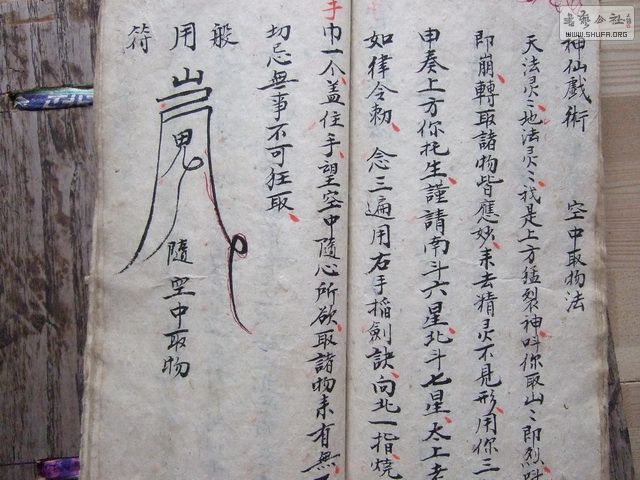 神仙戲術　空中取物法
天法灵〻地法灵〻我是上方猛裂神叫你取山〻即烈叫
即崩轉取諸物皆應妙来去精灵不見形用你三
申奏上方你托生謹請南斗六星北斗七星太上老
如律令勅　念三遍用右手搯劍訣向北一指燒
手巾一个盖住手望空中隨心所欲取諸物来有無
切忌無事不可狂取
般用符
鬼
隨空中取物
書藝公社
WWW.SHUFA.ORG